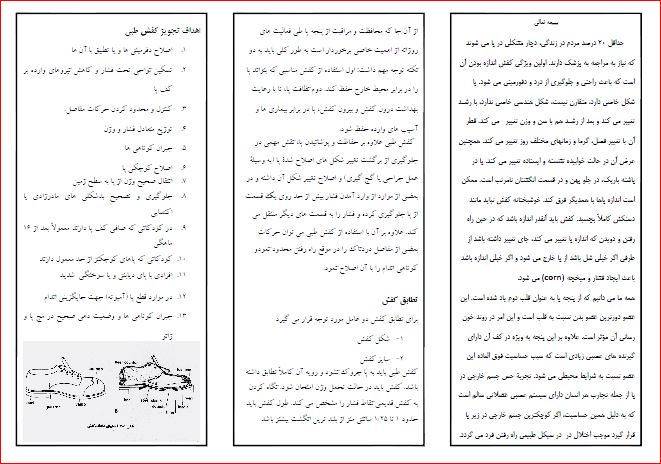 بسمه تعالی
حداقل ۲۰ درصد مردم در زندگی، دچار مشکلی در پا می شوند
که نیاز به مراجعه به پزشک دارند. اولین ویژگی کفش اندازه بودن آن
است که باعث راحتی و جلوگیری از درد و دفورمیتی می شود. پا
شکل خاصی دارد، متقارن نیست، شکل هندسی خاصی ندارد، با رشد
تغییر می کند و بعد از رشد هم با سن و وزن تغییر می کند. قطر
آن با تغییر فصل، گرما و زمانهای مختلف روز تغییر می کند. همچنین
عرض آن در حالت خوابیده نشسته و ایستاده تغییر می کند. پا در
پاشنه باریک، در جلو پهن و در قسمت انگشتان نامرتب است. ممکن
است اندازه پاها با همدیگر فرق کند. خوشبختانه کفش نباید مانند
دستکش کاملاً بچسبد. کفش باید آنقدر اندازه باشد که در حین راه
رفتن و دویدن که اندازه پا تغییر می کند، جای تغییر داشته باشد از
طرفی اگر خیلی شل باشد از پا خارج می شود و اگر خیلی اندازه باشد
باعث ایجاد فشار و میخچه (corn) می شود.
همه ما می دانیم که از پنجه پا به عنوان قلب دوم یاد شده است. این
عضو دورترین عضو بدن نسبت به قلب است و این امر در روند خون
رسانی آن مؤثر است. علاوه بر این پنجه پا به ویژه در کف آن دارای
گیرنده های عصبی زیادی است که سبب حساسیت فوق العاده این
عضو نسبت به شرایط محیطی می شود. تجربهٔ حس جسم خارجی در
پا از جمله تجارب هر انسان دارای سیستم عصبی عضلانی سالم است
که به دلیل همین حساسیت، اگر کوچکترین جسم خارجی در زیر پا
قرار گیرد موجب اختلال در در سیکل طبیعی راه رفتن فرد می گردد.
از آن جا که محافظت و مراقبت از پنجه پا طی فعالیت های
روزانه از اهمیت خاصی برخوردار است به طور کلی باید به دو
نکته توجه مهم داشت: اول استفاده از کفش مناسبی که بتواند پا
را در برابر محیط خارج حفظ کند. دوم نظافت پا، تا با رعایت
بهداشت درون کفش و بیرون کفش، پا در برابر بیماری ها و
آسیب های وارده حفظ شود.
کفش طبی علاوه بر حفاظت و پوشانیدن پا، نقش مهمی در
جلوگیری از برگشت تغییر شکل های اصلاح شدهٔ پا (به وسیلهٔ
عمل جراحی یا گچ گیری) و اصلاح تغییر شکل آن داشته و در
بعضی از موارد از وارد آمدن فشار بیش از حد روی یک قسمت
از پا جلوگیری کرده و فشار را به قسمت های دیگر منتقل می
کند. علاوه بر آن با استفاده از کفش طبی می توان حرکات
بعضی از مفاصل دردناک را در موقع راه رفتن محدود نمود و
کوتاهی اندام را با آن اصلاح نمود.
تطابق کفش
برای تطابق کفش دو عامل مورد توجه قرار می گیرد
۱- شکل کفش
۲- سایز کفش
کفش طبی باید به پا چروک نشود و رویه آن کاملاً تطابق داشته
باشد. کفش باید در حالت تحمل وزن امتحان شود. نگاه کردن
به کفش قدیمی نقاط فشار را مشخص می کند. طول کفش باید
حدود ۱ تا ۱/۲۵ سانتی متر از بلند ترین انگشت بیشتر باشد
اهداف تجویز کفش طبی
۱. اصلاح دفرمیتی ها و یا تطبیق با آن ها
۲. تسکین نواحی تحت فشار و کاهش نیروهای وارده بر
کف پا
۳. کنترل و محدود کردن حرکات مفاصل
۴. توزیع متعادل فشار و وزن
۵. جبران کوتاهی ها
۶. اصلاح کوچکی پا
۷. انتقال صحیح وزن از پا به سطح زمین
۸. جلوگیری و تصحیح بدشکلی های مادرزادی یا
اکتسابی
۹. در کودکانی که صافی کف پا دارند معمولاً بعد از ۱۶
ماهگی
۱۰. در کودکانی که پاهای کوچکتر از حد معمول دارند
۱۱. افرادی با پای دیابتی و یا سوختگی شدید
۱۲. در موارد قطع پا (آمپوته) جهت جایگزینی اندام
۱۳. جبران کوتاهی ها و وضعیت دهی صحیح در مچ پا و
زانو